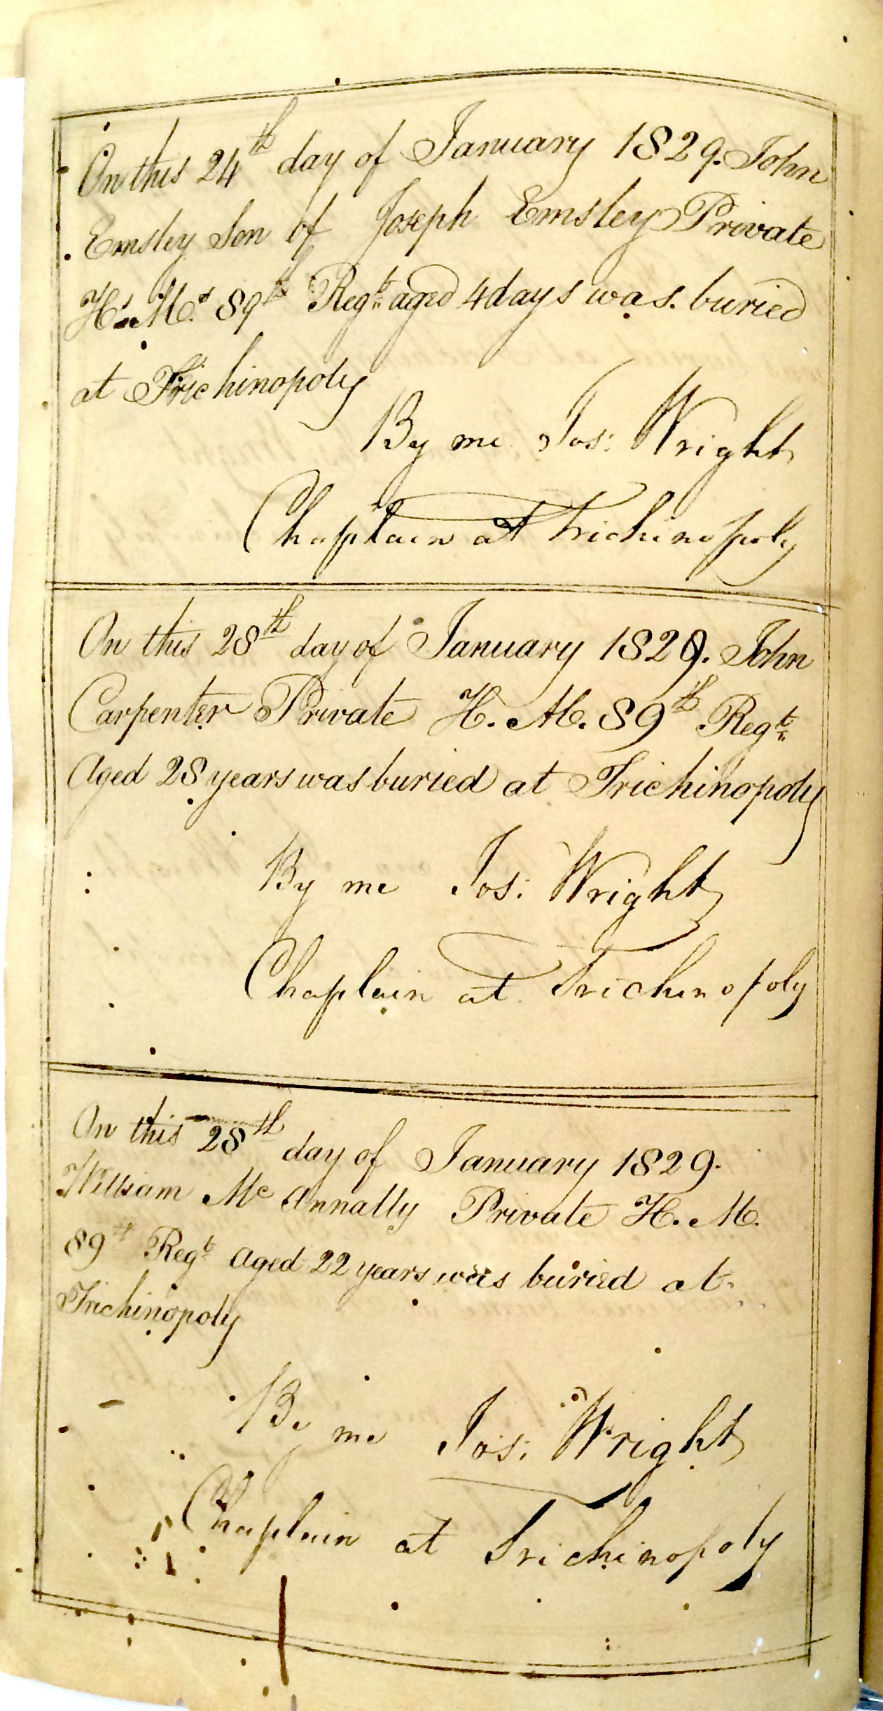 On this 24th day of January 1829. John
Emsley Son of Joseph Emsley Private
H.s M.s 89th Regt. aged 4 days was buried
at Trichinopoly
By me Jos: Wright
Chaplain at Trichinopoly
On this 28th day of January 1829. John
Carpenter Private H. M. 89th Regt.
Aged 28 years was buried at Trichinopoly
By me Jos: Wright
Chaplain at Trichinopoly
On this 28th day of January 1829.
William Mc Annally Private H. M.
89th Regt Aged 22 years was buried at
Trichinopoly
By me Jos: Wright
Chaplain at Trichinopoly